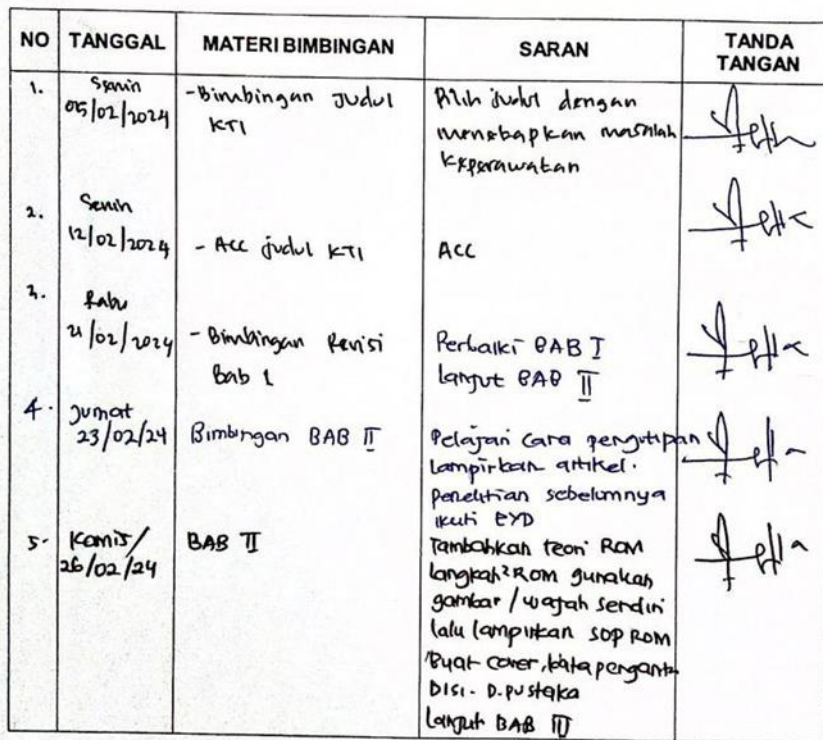 NO TANGGAL MATERI BIMBINGAN SARAN TANDA TANGAN
1. Senin
05/02/2024
-Bimbingan Judul
KTI
Pilih judul dengan
menetapkan masalah
Keperawatan
2. Senin
12/02/2024
- ACC judul KTI
ACC
3. Rabu
21/02/2024
- Bimbingan Revisi
Bab 1
Perbaiki BAB I
Lanjut BAB II
4. Jumat
23/02/24
Bimbingan BAB II
Pelajari cara pengutipan
Lampirkan artikel.
penelitian sebelumnya
ikuti EYD
5. Kamis/
26/02/24
BAB II
Tambahkan teori ROM
langkah² ROM gunakan
gambar / wajah sendiri
lalu lampirkan SOP ROM
Buat cover, kata pengantar
D.ISI - D.pustaka
Lanjut BAB III